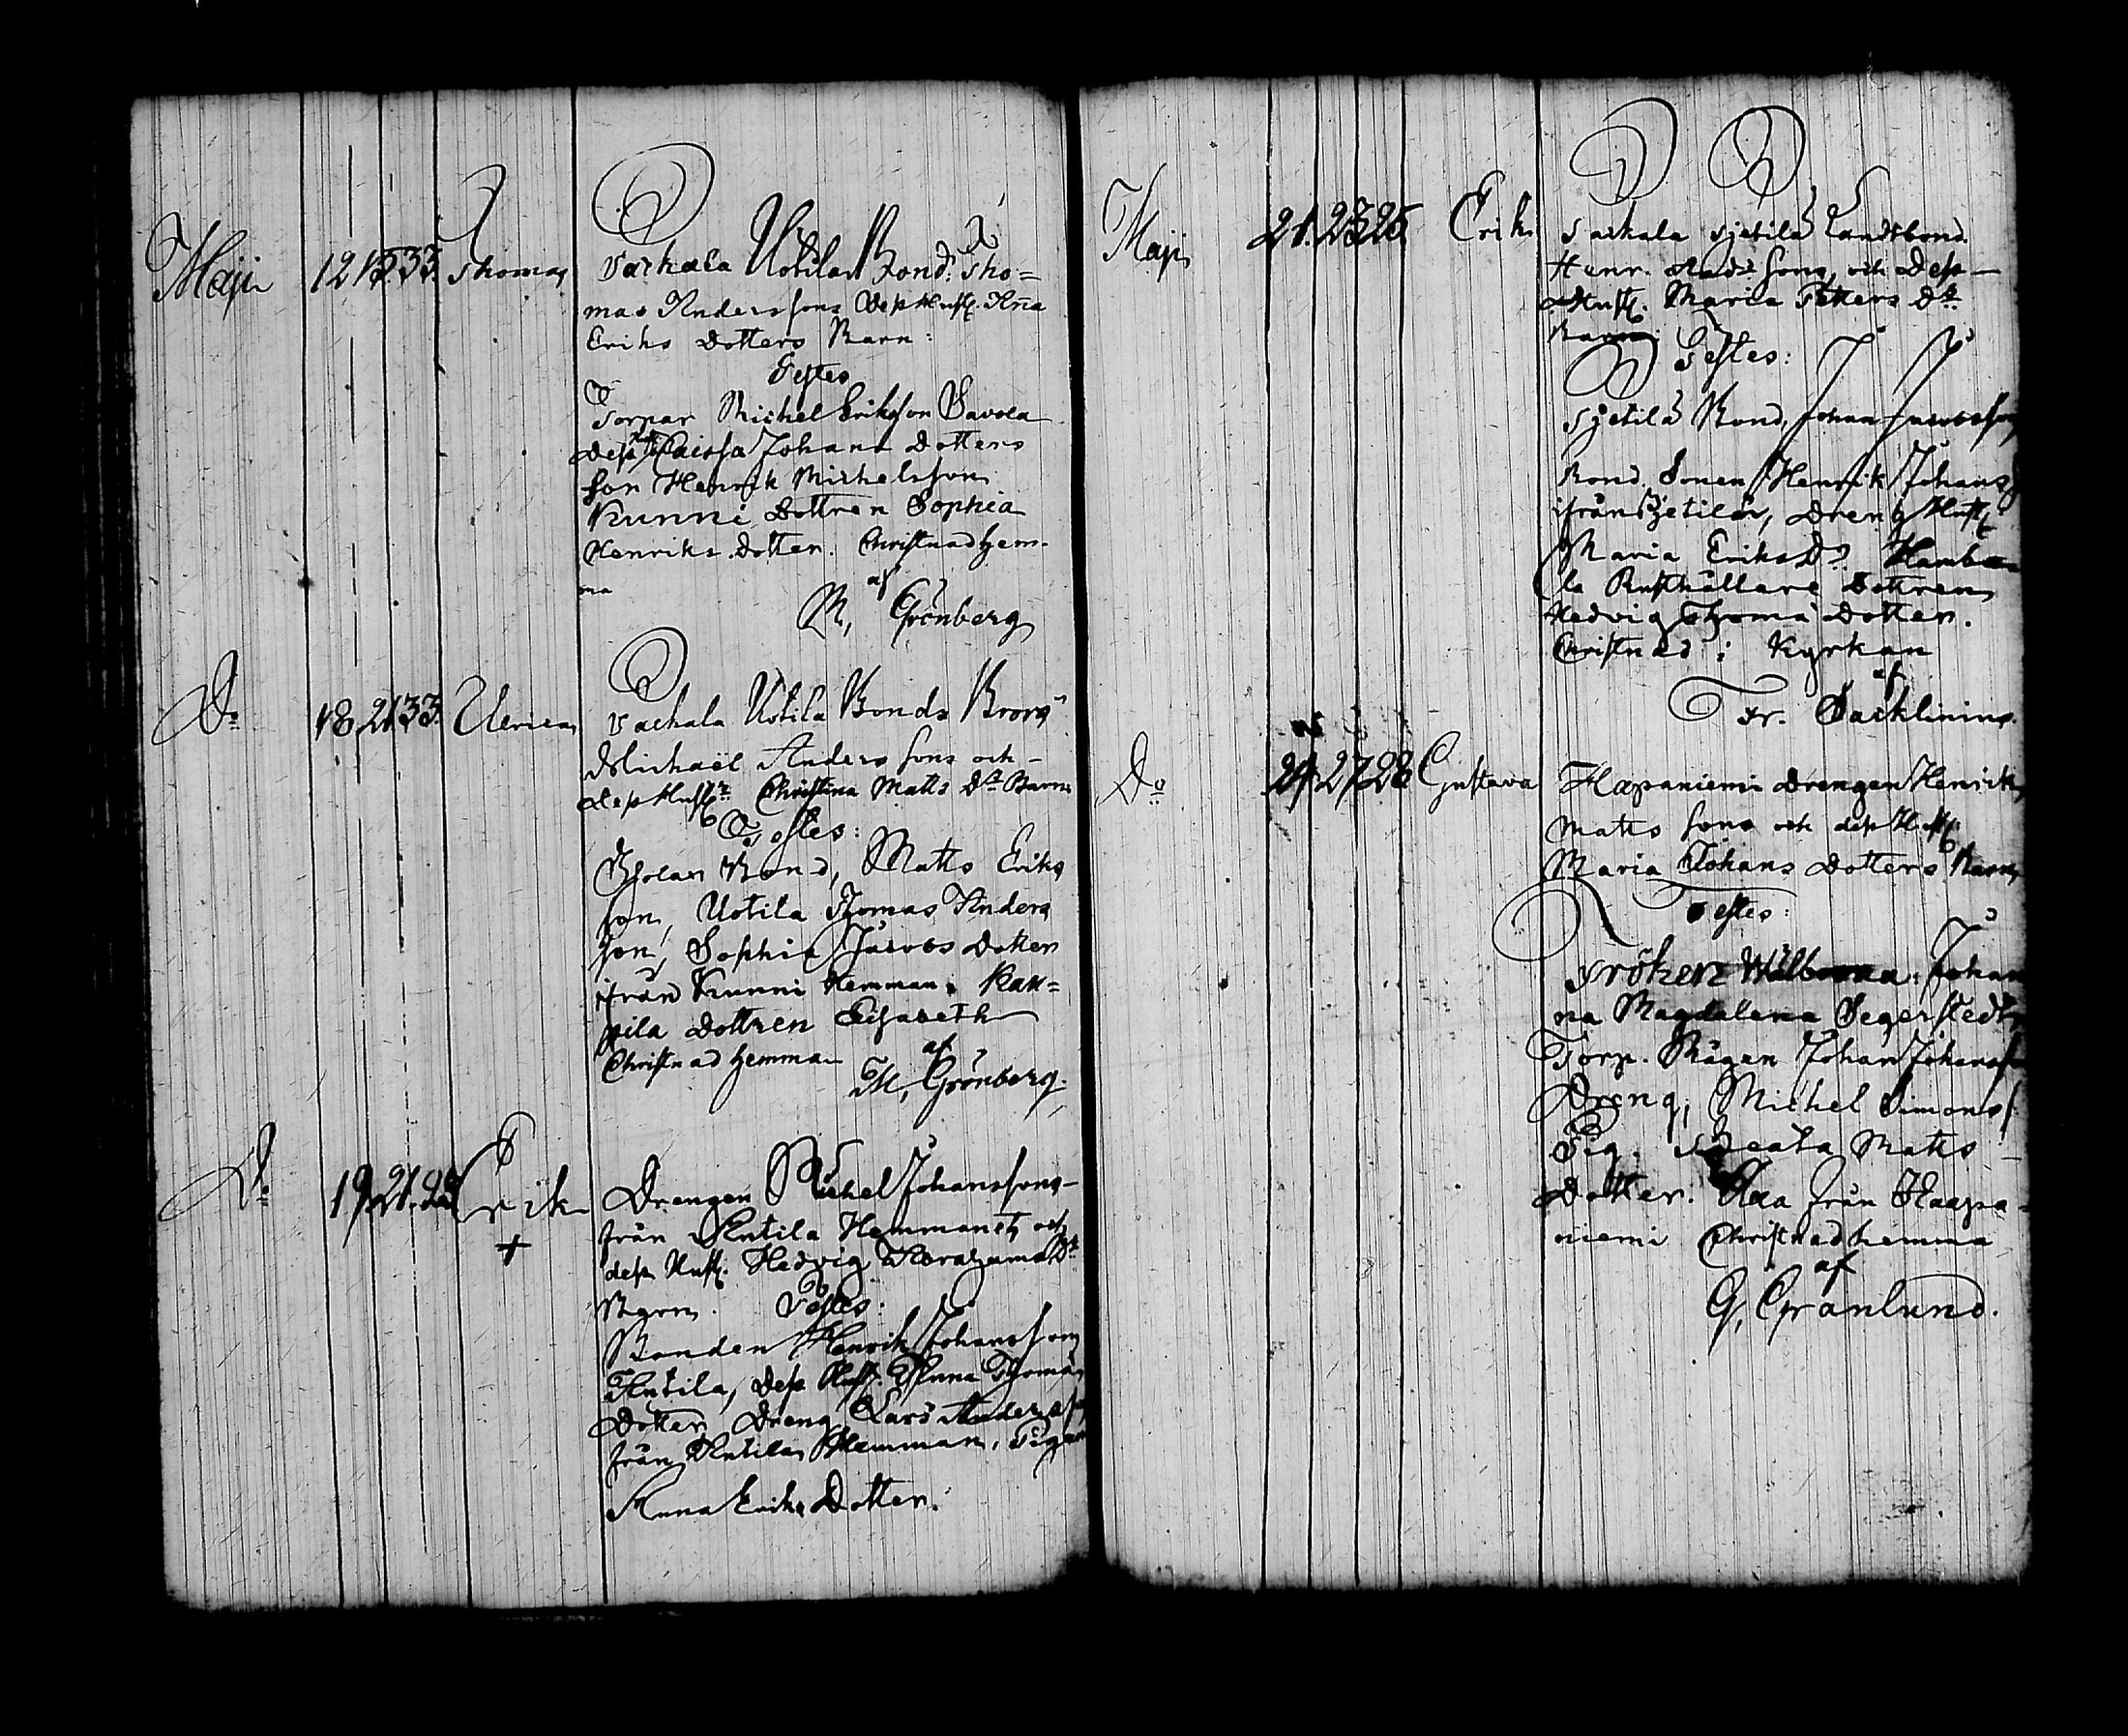 Maji 12 15 33. Thomas Varkala Uotila Bond. Tho=
mas Anderssons Dess Hust. Aña
Eriks Dotters Barn:
Testes
Torpar Michel Eriksson Savola
Dess Hust. Caissa Johans Dotters
Son Henrik Michelsson
Kunni Dottren Sophia
Henriks Dotter. Christnad hem-
ma
af
M, Grönberg
Do 18. 21 33. Ulrica Varkala Uotila Bonds Brors
Michaël Anders Sons och
dess Hustr. Christina Matts Dr Barn
Testes:
Bond, Matts Eriks
son, Uotila Thomas Anders
son, Sophia Jacobs Dotter
ifrån Kunni Hemman. Kau=
pila Dottren Elisabeth
Christnad hemma
af
M, Grönberg.
Do 19. 21. Erik Drengen Michel Johanssons
+
från Antila Hemmanet och
dess Hust. Hedvig Abrahams Dr
Barn. Testes:
Bonden Henrik Johansson
Antila, Dess Hust. Anna Thomas
Dotter Dreng Lars Anderss
från Antila Hemman, Pigan
Anna Eriks Dotter.
Maji 21. 23 25. Erik Varkala Sjetila Landtbond.
Henr. Sons, och Dess
Hust. Maria Petters Dr
Barn:
Testes:
Sjetilä Bond, Johan Jacobsson
Bond Sonen Henrik Johans
ifrån Sjetilä, Dreng Hust.
Maria Eriks Dr.
la Rusthållare Dottren
Hedvig Thoma Dotter.
Christnad i Kyrkan
af
Fr. Sacklinius.
Do 24. 27 28 Gustava Hapaniemi Drengen Henrik
Matts Sons och dess Hust.
Maria Johans Dotters Barn
Testes:
Fröken Wälborna Johan
na Magdalena Segerstedt
Torp. Rågen Johan Johansso
Dreng, Michel Simonss
Pig. Beata Matts
Dotter. Alla från Haapa-
niemi Christnad hemma
af
G, Granlund.